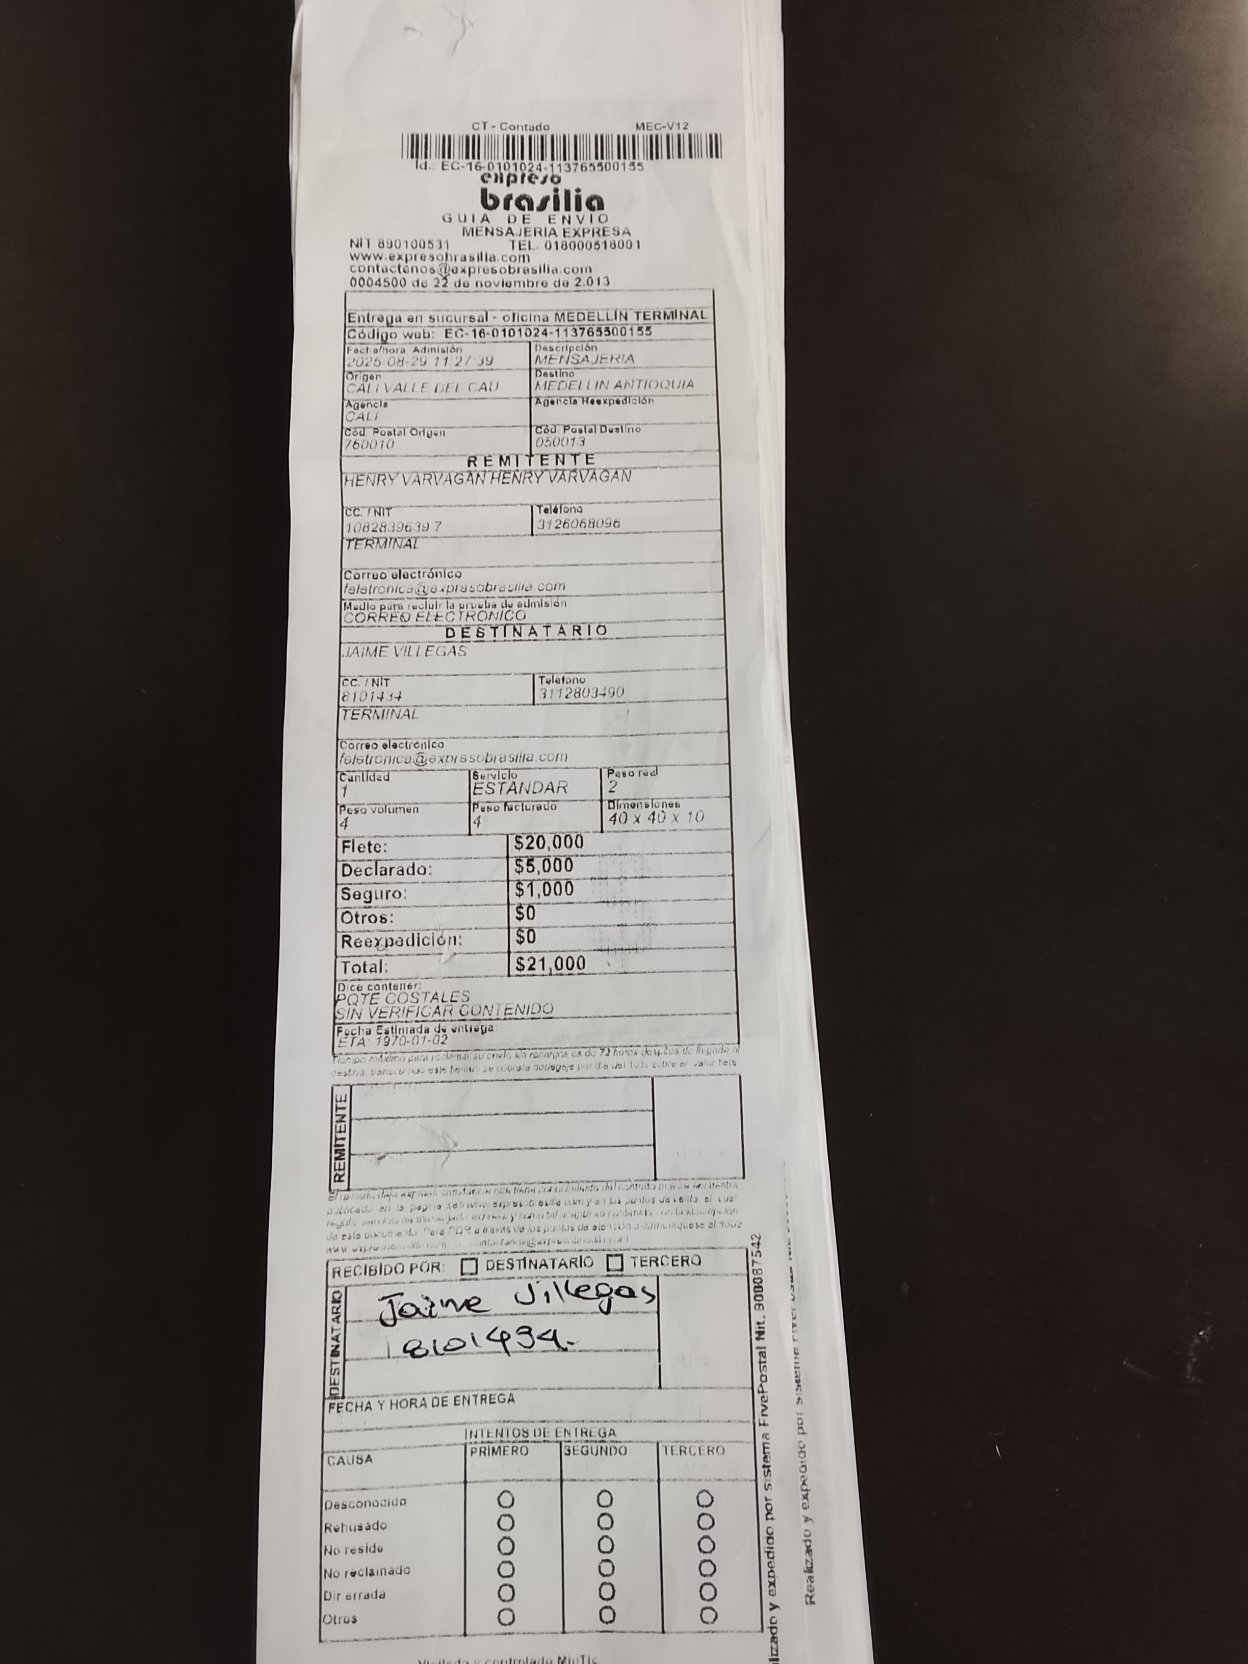 CT - Contado MEC-V12
Id.: EC-16-0101024-113765500155
expreso
brasilia
GUIA DE ENVIO
MENSAJERIA EXPRESA
NIT 890100531 TEL. 018000518001
www.expresobrasilia.com
contactenos@expresobrasilia.com
0004500 de 22 de noviembre de 2.013
Entrega en sucursal - oficina MEDELLIN TERMINAL
Código web: EC-16-0101024-113765500155
Fecha/hora Admisión Descripción
2025-08-29 11:27:39 MENSAJERIA
Origen Destino
CALI VALLE DEL CAU MEDELLIN ANTIOQUIA
Agencia Agencia Reexpedición
CALI
Cód. Postal Origen Cód. Postal Destino
760010 050013
REMITENTE
HENRY VARVAGAN HENRY VARVAGAN
CC. / NIT Teléfono
1082839639 7 3126068096
TERMINAL
Correo electrónico
feletronica@expresobrasilia.com
Medio para recibir la prueba de admisión
CORREO ELECTRONICO
DESTINATARIO
JAIME VILLEGAS
CC. / NIT Teléfono
8101434 3112803490
TERMINAL
Correo electrónico
feletronica@expresobrasilia.com
Cantidad Servicio Peso real
1 ESTANDAR 2
Peso volumen Peso facturado Dimensiones
4 4 40 x 40 x 10
Flete: $20,000
Declarado: $5,000
Seguro: $1,000
Otros: $0
Reexpedición: $0
Total: $21,000
Dice contener:
PQTE COSTALES
SIN VERIFICAR CONTENIDO
Fecha Estimada de entrega:
ETA: 1970-01-02
Tiempo máximo para reclamar su envío sin recargos es de 72 horas después de llegada al
destino, transcurrido este tiempo se cobrará bodegaje por día del 10% sobre el valor flete
REMITENTE
publicado en la página web www.expresobrasilia.com y en los puntos de venta, el cual
de este documento. Para PQR a través de los puntos de atención o comuníquese al
RECIBIDO POR: DESTINATARIO TERCERO
DESTINATARIO
Jaime Villegas
8101434.
FECHA Y HORA DE ENTREGA
INTENTOS DE ENTREGA
CAUSA PRIMERO SEGUNDO TERCERO
Desconocido
Rehusado
No reside
No reclamado
Dir errada
Otros
Vigilado y controlado MinTic
lizado y expedido por sistema FrvePostal Nit. 900087542
Realizado y expedido por sistema